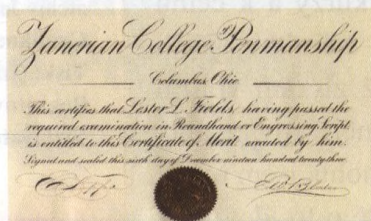 Zanerian College Penmanship
Columbus, Ohio
This certifies that Lester L. Fields, having passed the
required examination in Roundhand or Engrossing Script,
is entitled to this Certificate of Merit executed by him.
Signed and sealed this sixth day of December nineteen hundred twenty three